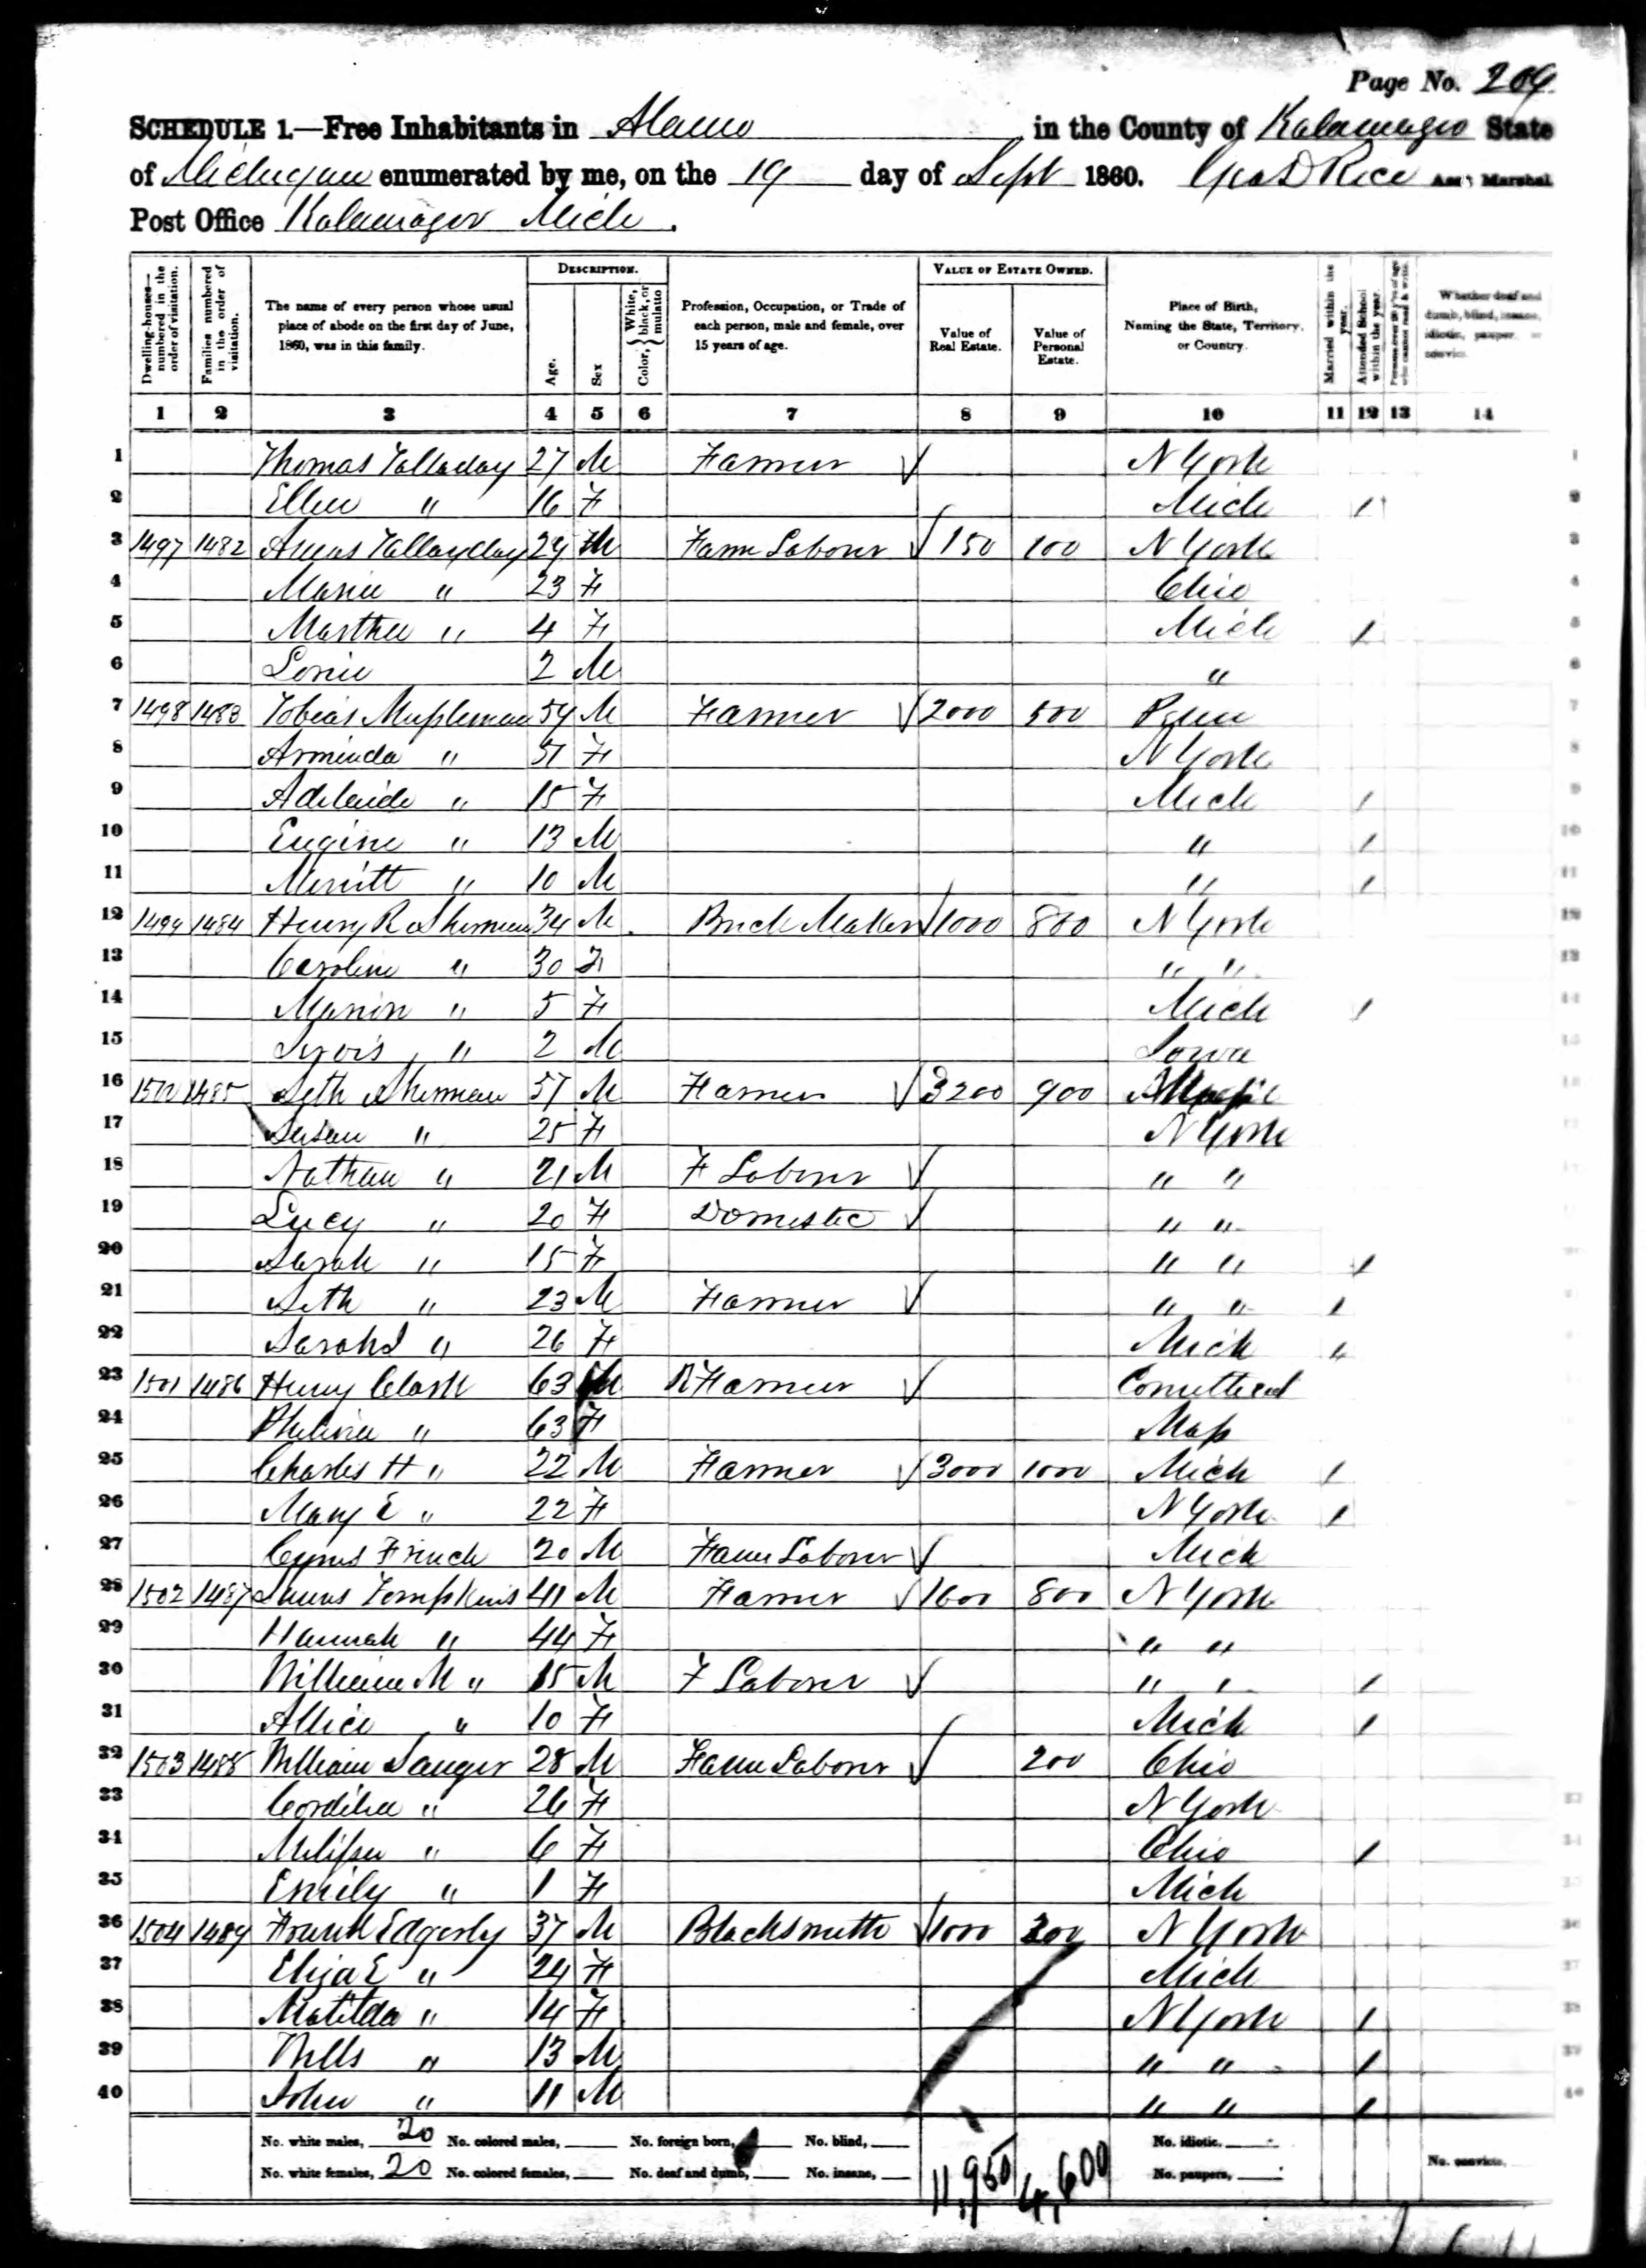 Page No. 209
SCHEDULE 1.—Free Inhabitants in Alamo in the County of Kalamazoo State
of Michigan enumerated by me, on the 19 day of Sept 1860. Geo D Rice Ass't Marshal
Post Office Kalamazoo Mich.
Dwelling-houses—numbered in the order of visitation.
Families numbered in the order of visitation.
The name of every person whose usual place of abode on the first day of June, 1860, was in this family.
DESCRIPTION.
Age.
Sex
Color, { White, black, or mulatto
Profession, Occupation, or Trade of each person, male and female, over 15 years of age.
VALUE OF ESTATE OWNED.
Value of Real Estate.
Value of Personal Estate.
Place of Birth, Naming the State, Territory, or Country.
Married within the year.
Attended School within the year.
Persons over 20 y'rs of age who cannot read & write.
Whether deaf and dumb, blind, insane, idiotic, pauper, or convict.
1 2 3 4 5 6 7 8 9 10 11 12 13 14
1 Thomas Talladay 27 M Farmer √ N York 1
2 Ellen " 16 F Mich / 2
3 1497 1482 Amas Talladay 29 M Farm Laborer √ 150 100 N York 3
4 Maria " 23 F Ohio 4
5 Martha " 4 F Mich / 5
6 2 M "
7 1498 1483 Tobias Mussleman 54 M Farmer √ 2000 500 Penn 7
8 Arminda " 51 F N York 8
9 Adelaide " 15 F Mich / 9
10 Eugine " 13 M " / 10
11 Merritt " 10 M " / 11
12 1499 1484 Henry R Sherman 34 M Brick Maker √ 1000 800 N York 12
13 Caroline " 30 F " " 13
14 Marion " 5 F Mich / 14
15 " 2 M Iowa 15
16 1500 1485 Seth Sherman 57 M Farmer √ 3200 900
17 Susan " 25 F N York
18 Nathan " 21 M F Laborer √ " "
19 Lucy " 20 F Domestic √ " "
20 Sarah " 15 F " " /
21 Seth " 23 M Farmer √ " " /
22 Sarah " 26 F Mich /
23 1501 1486 Henry Clark 63 M R Farmer √ Conutticut
24 " 63 F Mass
25 Charles H " 22 M Farmer √ 3000 1000 Mich /
26 Mary E " 22 F N York /
27 Cyrus French 20 M Farm Laborer √ Mich
28 1502 1487 Tompkins 41 M Farmer √ 1600 800 N York
29 Hannah " 44 F " "
30 William M " 15 M F Laborer √ " " /
31 Allice " 10 F Mich /
32 1503 1488 William Sanger 28 M Farm Laborer √ 200 Ohio
33 Cordilia " 26 F N York 33
34 Melissa " 6 F Ohio / 34
35 Emily " 1 F Mich 35
36 1504 1489 Frank Edgerly 37 M Blacksmith √ 1000 300 N York 36
37 Eliza E " 24 F Mich 37
38 Matilda " 14 F N York / 38
39 Wells " 13 M " " / 39
40 John " 11 M " " / 40
No. white males, 20 No. colored males, No. foreign born, No. blind, No. idiotic,
No. white females, 20 No. colored females, No. deaf and dumb, No. insane, 11,950 4,600 No. paupers, No. convicts,